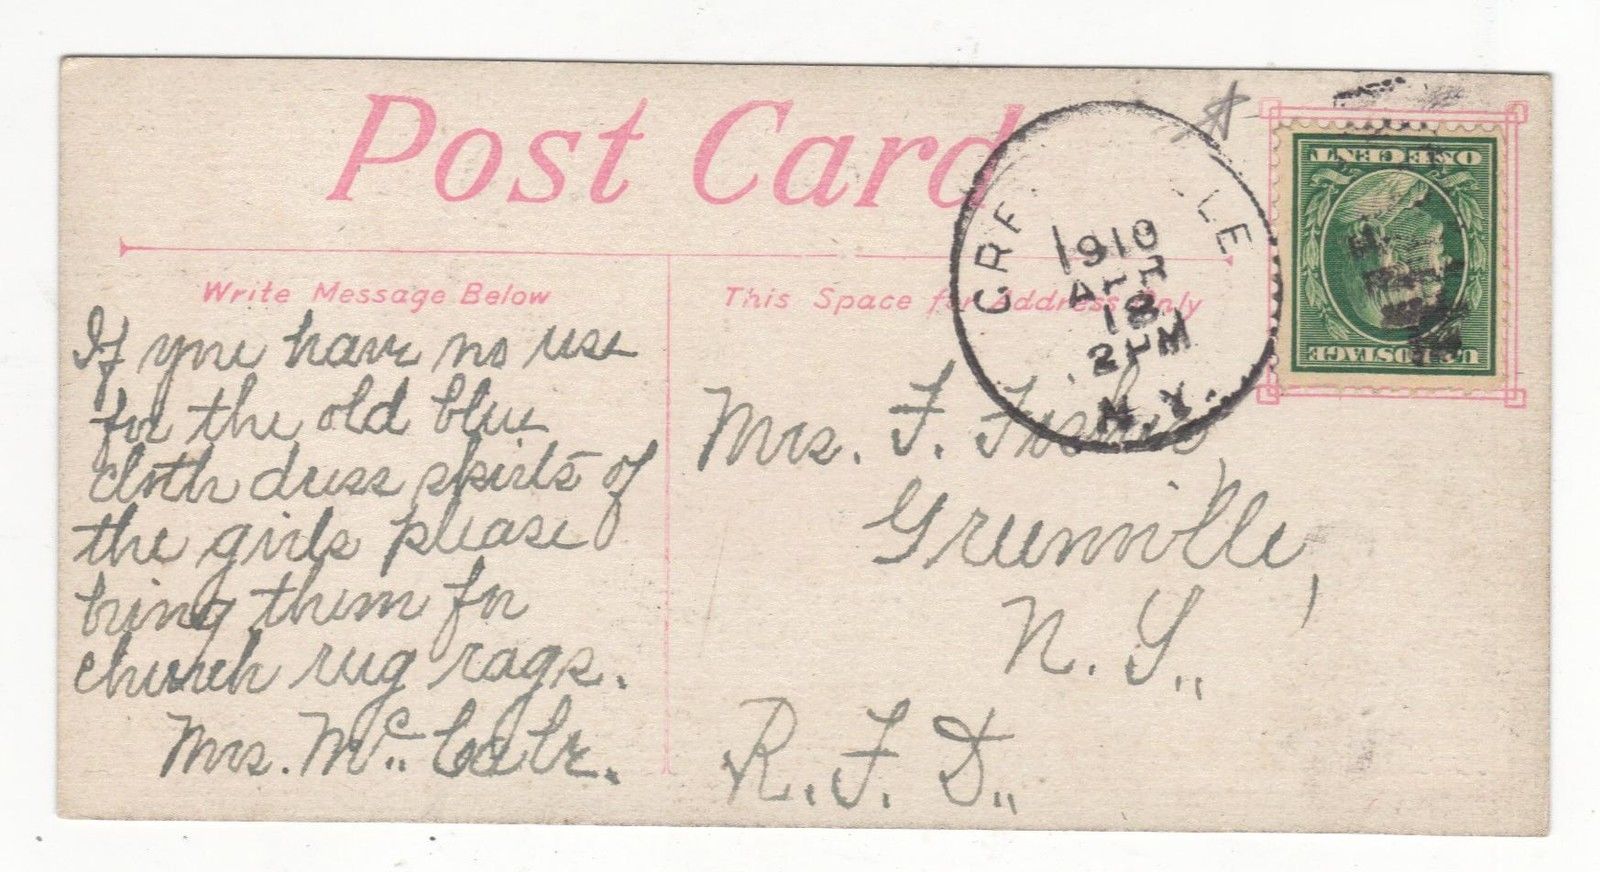 Post Card
Write Message Below
If you have no use
for the old blue
cloth dress skirts of
the girls please
bring them for
church rug rags.
Mrs. Mc.. Cabe.
This Space for Address Only
Mrs. F.
Greenville,
N. Y.,
R. F. D.,
1910
APR
18
2 PM
N.Y.
U.S. POSTAGE
ONE CENT